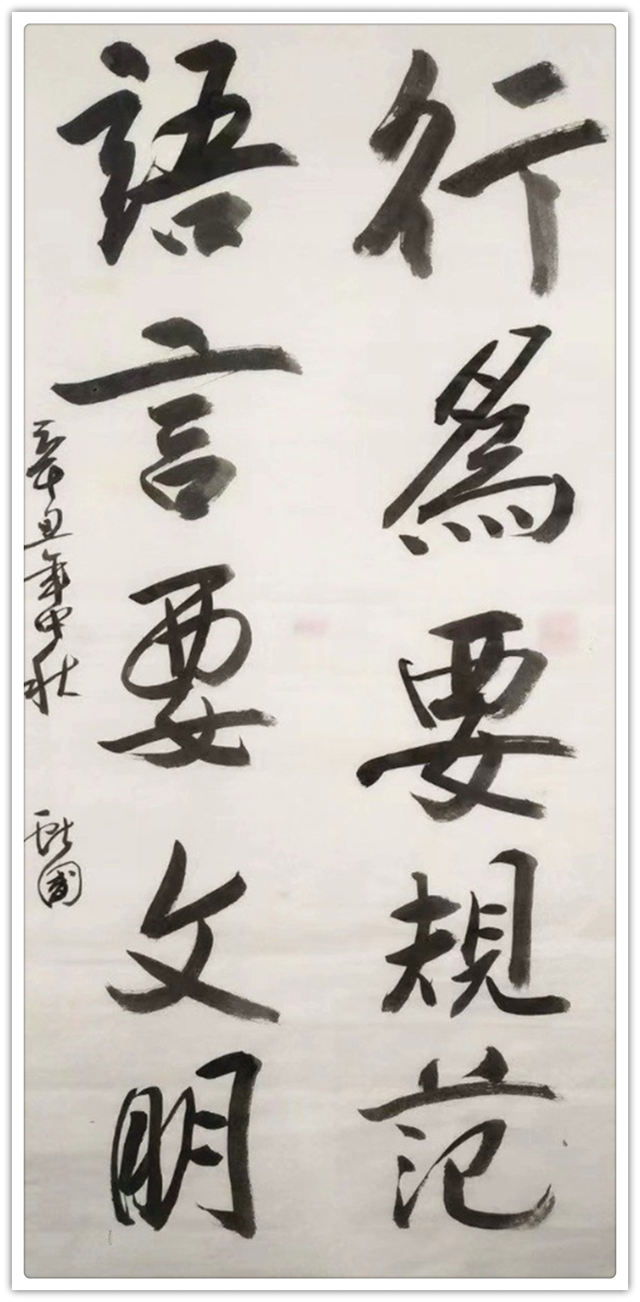 行為要規范
語言要文明
辛丑年中秋
國